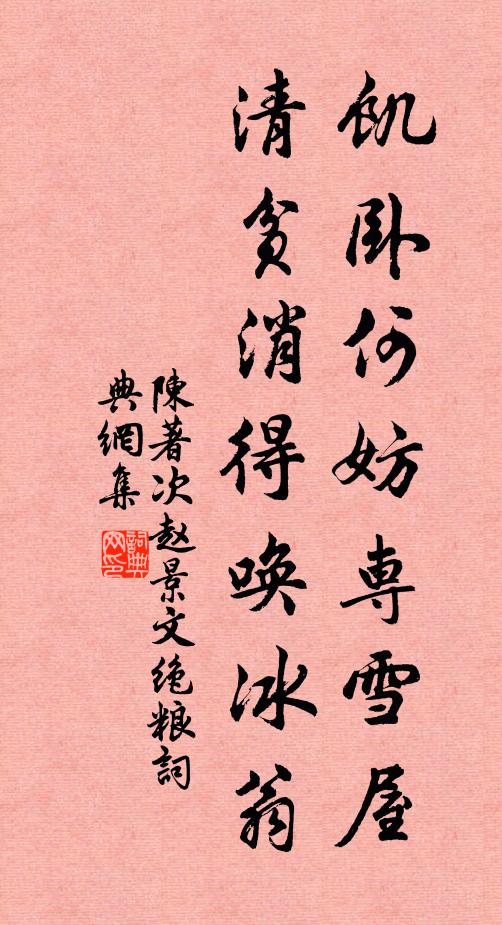 飢卧何妨専雪屋
清貧消得唤冰翁
陳著次赵景文绝粮詞
典網集
詞典网印